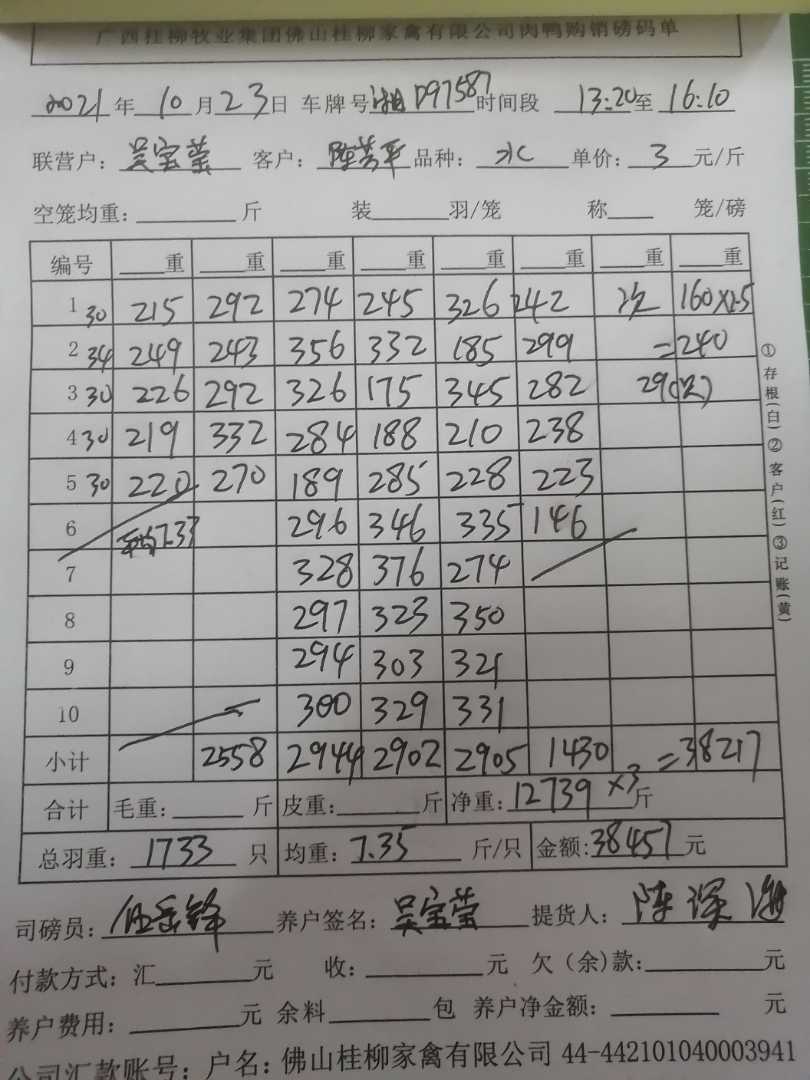 广西桂柳牧业集团佛山桂柳家禽有限公司肉鸭购销磅码单
2021年10月23日 车牌号湘D97587时间段 13:20至16:10
联营户：吴宝莹 客户：陈芳平 品种：水 单价：3元/斤
空笼均重：____斤 装____羽/笼 称____笼/磅
编号 ____重 ____重 ____重 ____重 ____重 ____重 ____重 ____重
1 30 215 292 274 245 326 242 次 160×1.5
2 34 249 243 356 332 185 299 =240
3 30 226 292 326 175 345 282 29(次)
4 30 219 332 284 188 210 238
5 30 220 270 189 285 228 223
6 平均7.33 296 346 335 146
7 328 376 274
8 297 323 350
9 294 303 321
10 300 329 331
小计 2558 2944 2902 2905 1430 =38217
合计 毛重：____斤 皮重：____斤 净重：12739×3斤
总羽重：1733只 均重：7.35斤/只 金额：38457元
司磅员：伍岳锋 养户签名：吴宝莹 提货人：陈深
付款方式：汇____元 收：____元 欠（余）款：____元
养户费用：____元 余料____包 养户净金额：____元
公司汇款账号：户名：佛山桂柳家禽有限公司 44-442101040003941
①存根(白)②客户(红)③记账(黄)